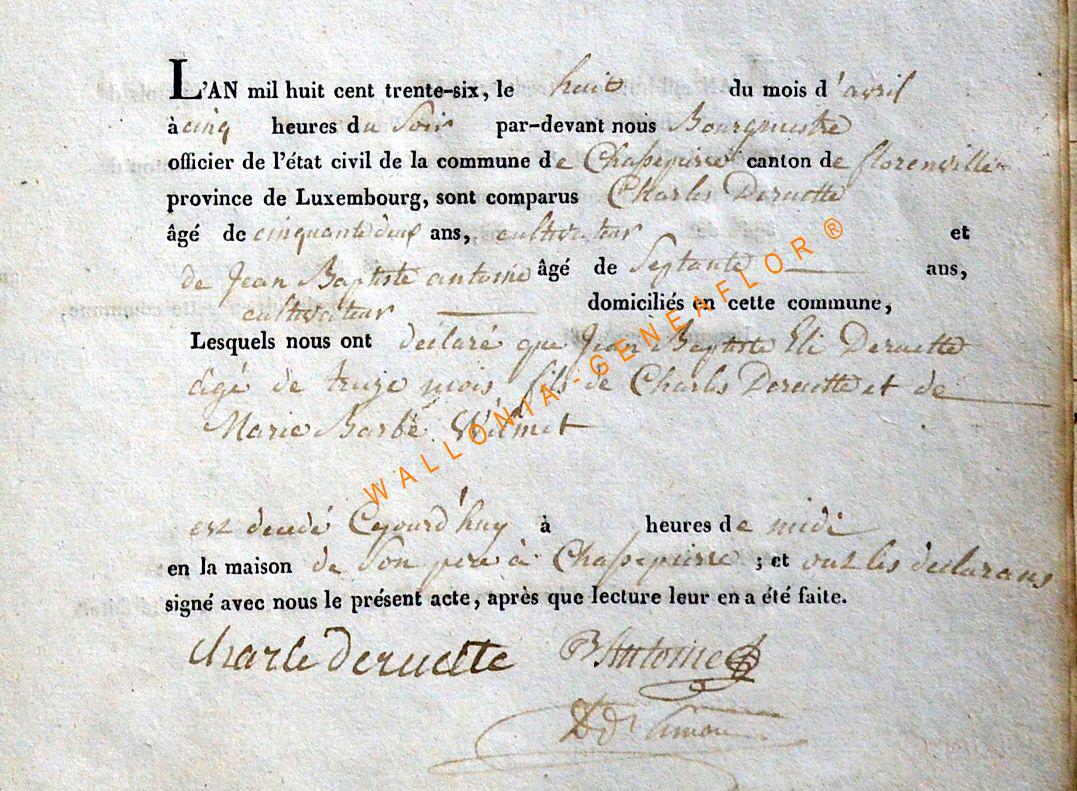 L'AN mil huit cent trente-six, le huit du mois d'avril
à cinq heures du soir par-devant nous Bourgmestre
officier de l'état civil de la commune de Chassepierre canton de florenville
province de Luxembourg, sont comparus Charles Deruette
âgé de cinquante deux ans, cultivateur et
de Jean Baptiste antoine âgé de Septante ans,
cultivateur domiciliés en cette commune,
Lesquels nous ont déclaré que Jean Baptiste Eli Deruette
agé de treize mois fils de Charles Deruette et de
Marie Barbe Wilmet
est decedé Cejourd'huy à heures de midi
en la maison de Son pere à Chassepierre ; et ont les declarans
signé avec nous le présent acte, après que lecture leur en a été faite.
charle deruette Antoine
WALLONIA-GENEAFLOR®